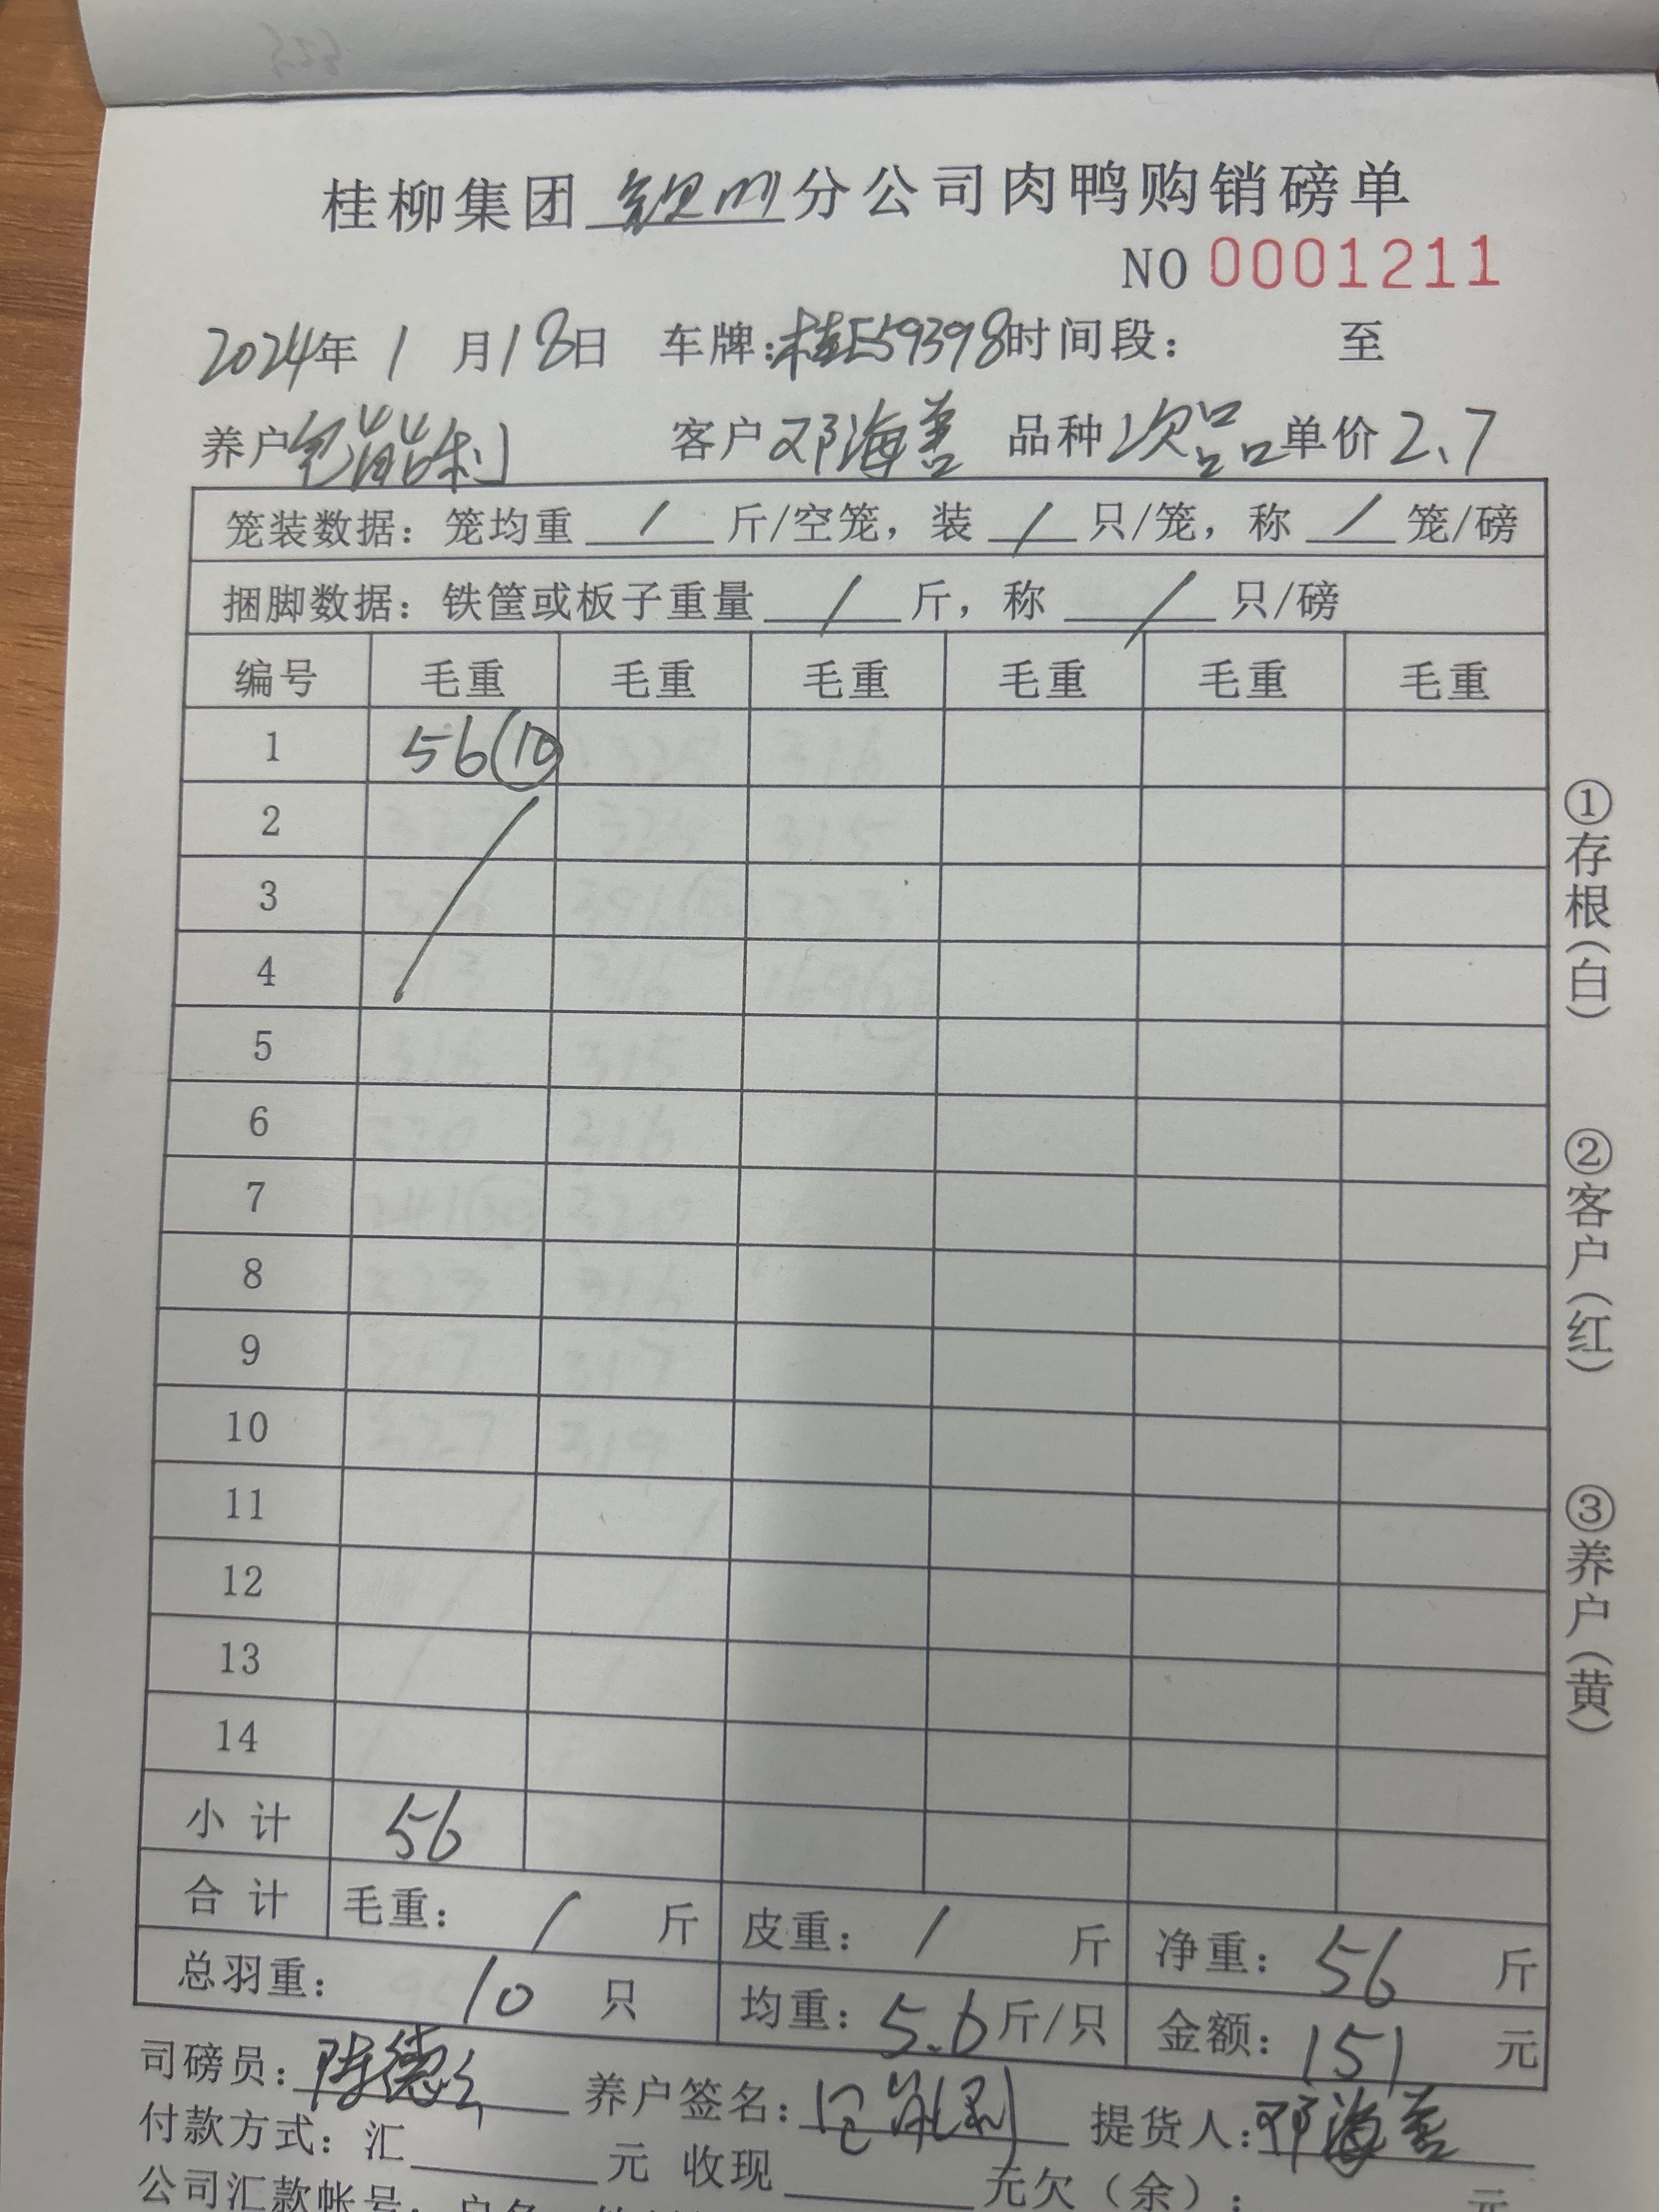 桂柳集团 钦州 分公司肉鸭购销磅单
NO 0001211
2024年 1 月 18日 车牌:桂E59398 时间段: 至
养户 客户 邓海善 品种 次品 单价 2.7
笼装数据:笼均重 / 斤/空笼,装 / 只/笼,称 / 笼/磅
捆脚数据:铁筐或板子重量 / 斤,称 / 只/磅
编号 毛重 毛重 毛重 毛重 毛重 毛重
1 56 ⑩
2
3
4
5
6
7
8
9
10
11
12
13
14
小计 56
合计 毛重: / 斤 皮重: / 斤 净重: 56 斤
总羽重: 10 只 均重: 5.6 斤/只 金额: 151 元
司磅员: 陈德 养户签名: 提货人: 邓海善
付款方式:汇 元 收现 元欠(余): 元
公司汇款帐号:户名
①存根(白)
②客户(红)
③养户(黄)